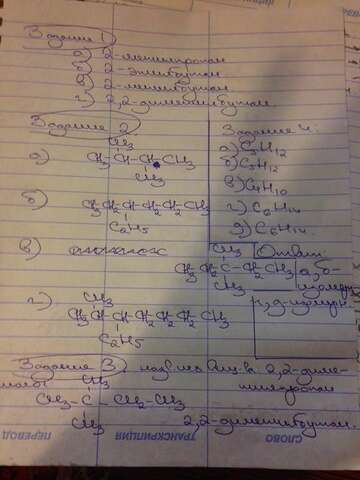 Задание 1)
а) 2-метилпропан
б) 2-этилбутан
в) 2-метилбутан
г) 2,2-диметилбутан
Задание 2.
CH3
а) CH3-CH-CH-CH3
CH3
б) CH3-CH-CH2-CH2-CH3
C2H5
в)
CH3
CH3-CH2-C-CH2-CH3
CH3
г) CH3
CH3-CH-CH-CH2-CH2-CH3
C2H5
Задание 4:
а) C5H12
б) C5H12
в) C4H10
г) C6H14
д) C6H14.
Ответ:
а,б-
изомеры
г,д-изомеры
Задание 3.
2,2-диме-
тилпропан
CH3
CH3-C-CH2-CH3
CH3
2,2-диметилбутан.
СЛОВО
ТРАНСКРИПЦИЯ
ПЕРЕВОД